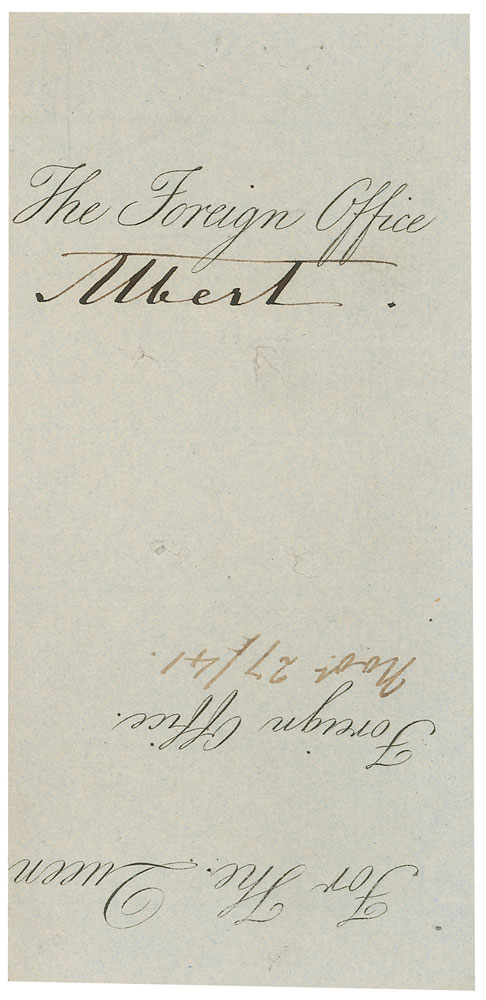 The Foreign Office
Albert.
For The Queen
Foreign Office.
Novr 27/41.